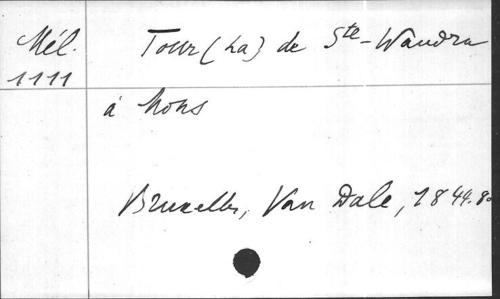 Mél. Tour (La) de Ste-Waudru
1111
à Mons
Bruxelles, Van Dale, 1844. 8o